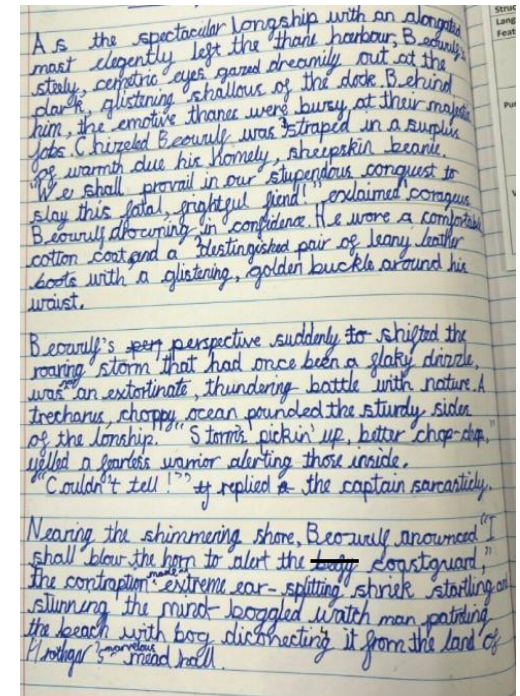 As the spectacular Longship with an alongated
mast elegently left the thane harbour, Beowulf's
steely, cemetric eyes gazed dreamily out at the
dark, glistening shallows of the dock. Behind
him, the emotive thanes were busy at their majestic
jobs. Chizeled Beowulf was straped in a surplus
of warmth due his homely, sheepskin beanie.
"We shall provail in our stupendous conquest to
slay this fatal, frightful fiend!" exlaimed corageus
Beowulf drowning in confidence. He wore a comfortable
cotton coat and a destingished pair of leany leather
boots with a glistening, golden buckle around his
waist.
Beowulf's perspective suddenly shifted the
roaring storm that had once been a flaky drizzle,
was an extortinate, thundering battle with nature. A
trecharus, choppy ocean pounded the sturdy sides
of the lonship. "Storm's pickin' up, better chop-chop,"
yelled a fearless warrior alerting those inside.
"Couldn't tell!" replied the captain sarcasticly.
Nearing the shimmering shore, Beowulf anounced "I
shall blow the horn to alert the coastguard,"
The contraption made a extreme ear-splitting shriek startling and
stunning the mind-boggled watch man patroling
the beach with bog diconecting it from the land of
Hrothgar's marvelous mead hall.
Struc
Lang
Feat
Pur